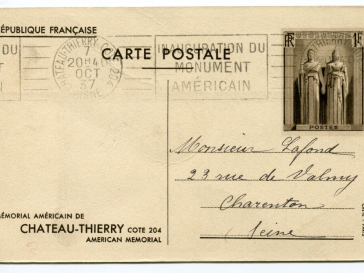 RÉPUBLIQUE FRANÇAISE
CARTE POSTALE
CHATEAU-THIERRY
7
20H4
OCT
37
INAUGURATION DU
MONUMENT
AMÉRICAIN
RF
POSTES
Monsieur Lafond
23 rue de Valmy
Charenton
Seine
MÉMORIAL AMÉRICAIN DE
CHATEAU-THIERRY COTE 204
AMERICAN MEMORIAL